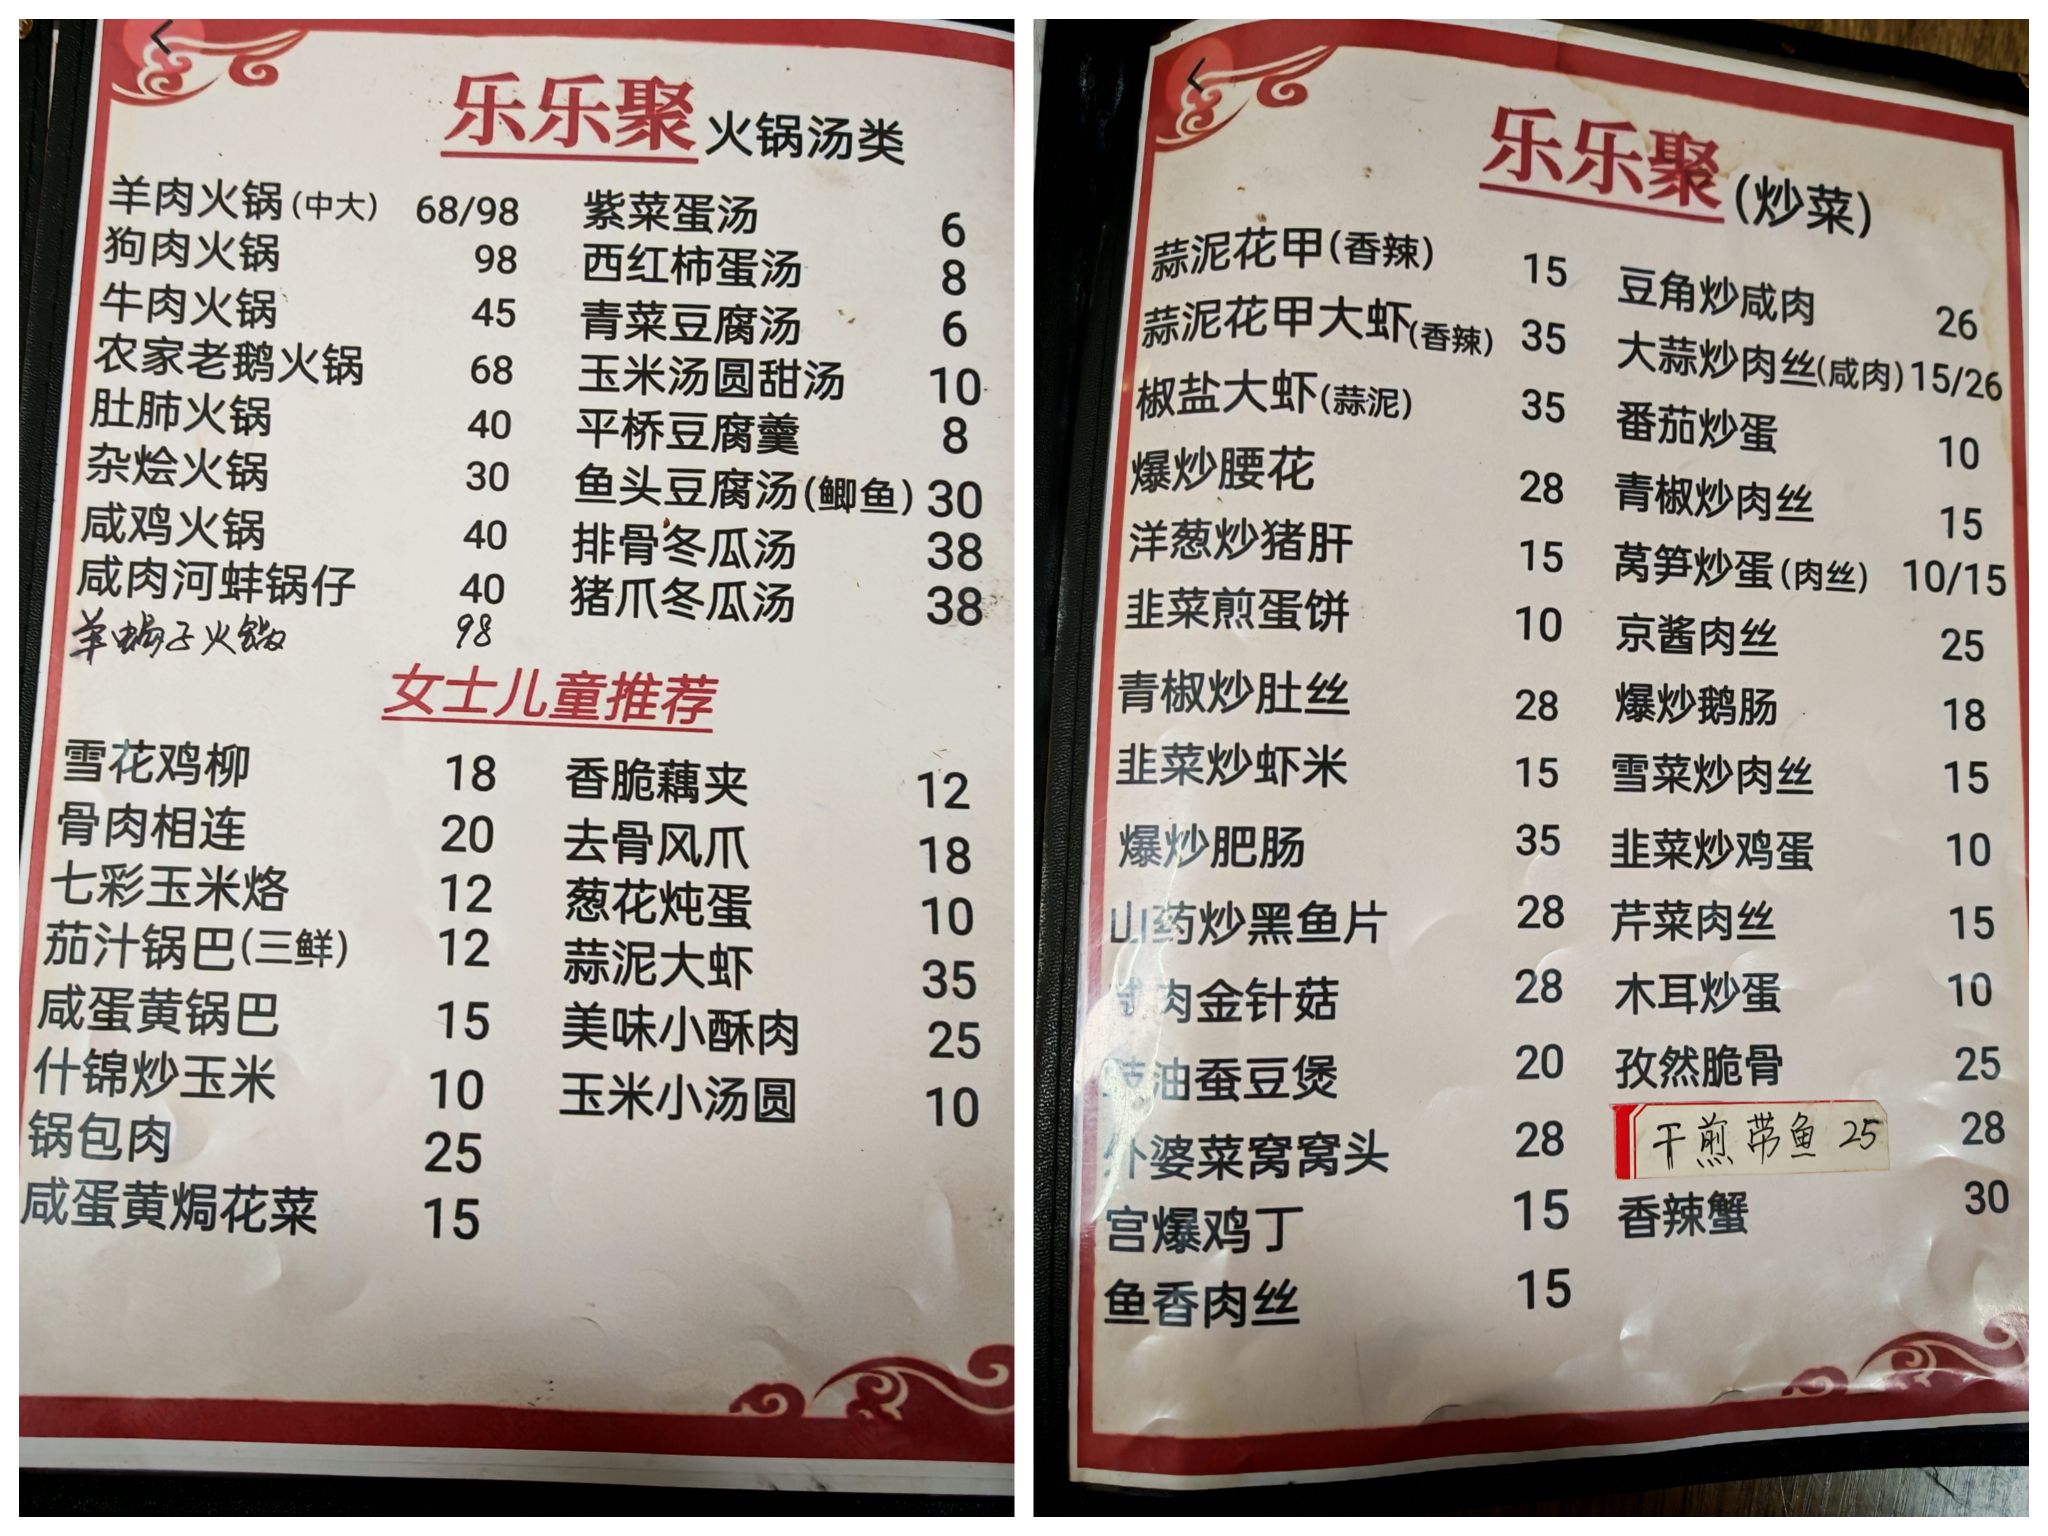 乐乐聚 火锅汤类
羊肉火锅(中大) 68/98
狗肉火锅 98
牛肉火锅 45
农家老鹅火锅 68
肚肺火锅 40
杂烩火锅 30
咸鸡火锅 40
咸肉河蚌锅仔 40
羊蝎子火锅 98
紫菜蛋汤 6
西红柿蛋汤 8
青菜豆腐汤 6
玉米汤圆甜汤 10
平桥豆腐羹 8
鱼头豆腐汤(鲫鱼) 30
排骨冬瓜汤 38
猪爪冬瓜汤 38
女士儿童推荐
雪花鸡柳 18
骨肉相连 20
七彩玉米烙 12
茄汁锅巴(三鲜) 12
咸蛋黄锅巴 15
什锦炒玉米 10
锅包肉 25
咸蛋黄焗花菜 15
香脆藕夹 12
去骨风爪 18
葱花炖蛋 10
蒜泥大虾 35
美味小酥肉 25
玉米小汤圆 10
乐乐聚(炒菜)
蒜泥花甲(香辣) 15
蒜泥花甲大虾(香辣) 35
椒盐大虾(蒜泥) 35
爆炒腰花 28
洋葱炒猪肝 15
韭菜煎蛋饼 10
青椒炒肚丝 28
韭菜炒虾米 15
爆炒肥肠 35
山药炒黑鱼片 28
肉金针菇 28
油蚕豆煲 20
外婆菜窝窝头 28
宫爆鸡丁 15
鱼香肉丝 15
豆角炒咸肉 26
大蒜炒肉丝(咸肉) 15/26
番茄炒蛋 10
青椒炒肉丝 15
莴笋炒蛋(肉丝) 10/15
京酱肉丝 25
爆炒鹅肠 18
雪菜炒肉丝 15
韭菜炒鸡蛋 10
芹菜肉丝 15
木耳炒蛋 10
孜然脆骨 25
干煎带鱼 25 28
香辣蟹 30